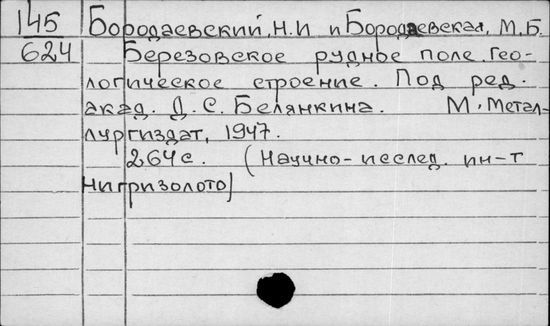 145 Бородаевский, Н.И и Бородаевская, М.Б.
624 Березовское рудное поле. Гео-
логическое строение. Под ред.
акад. Д.С. Белянкина. М. Метал-
лургиздат, 1947.
264 с. (Научно-исслед. ин-т
Нигризолото)